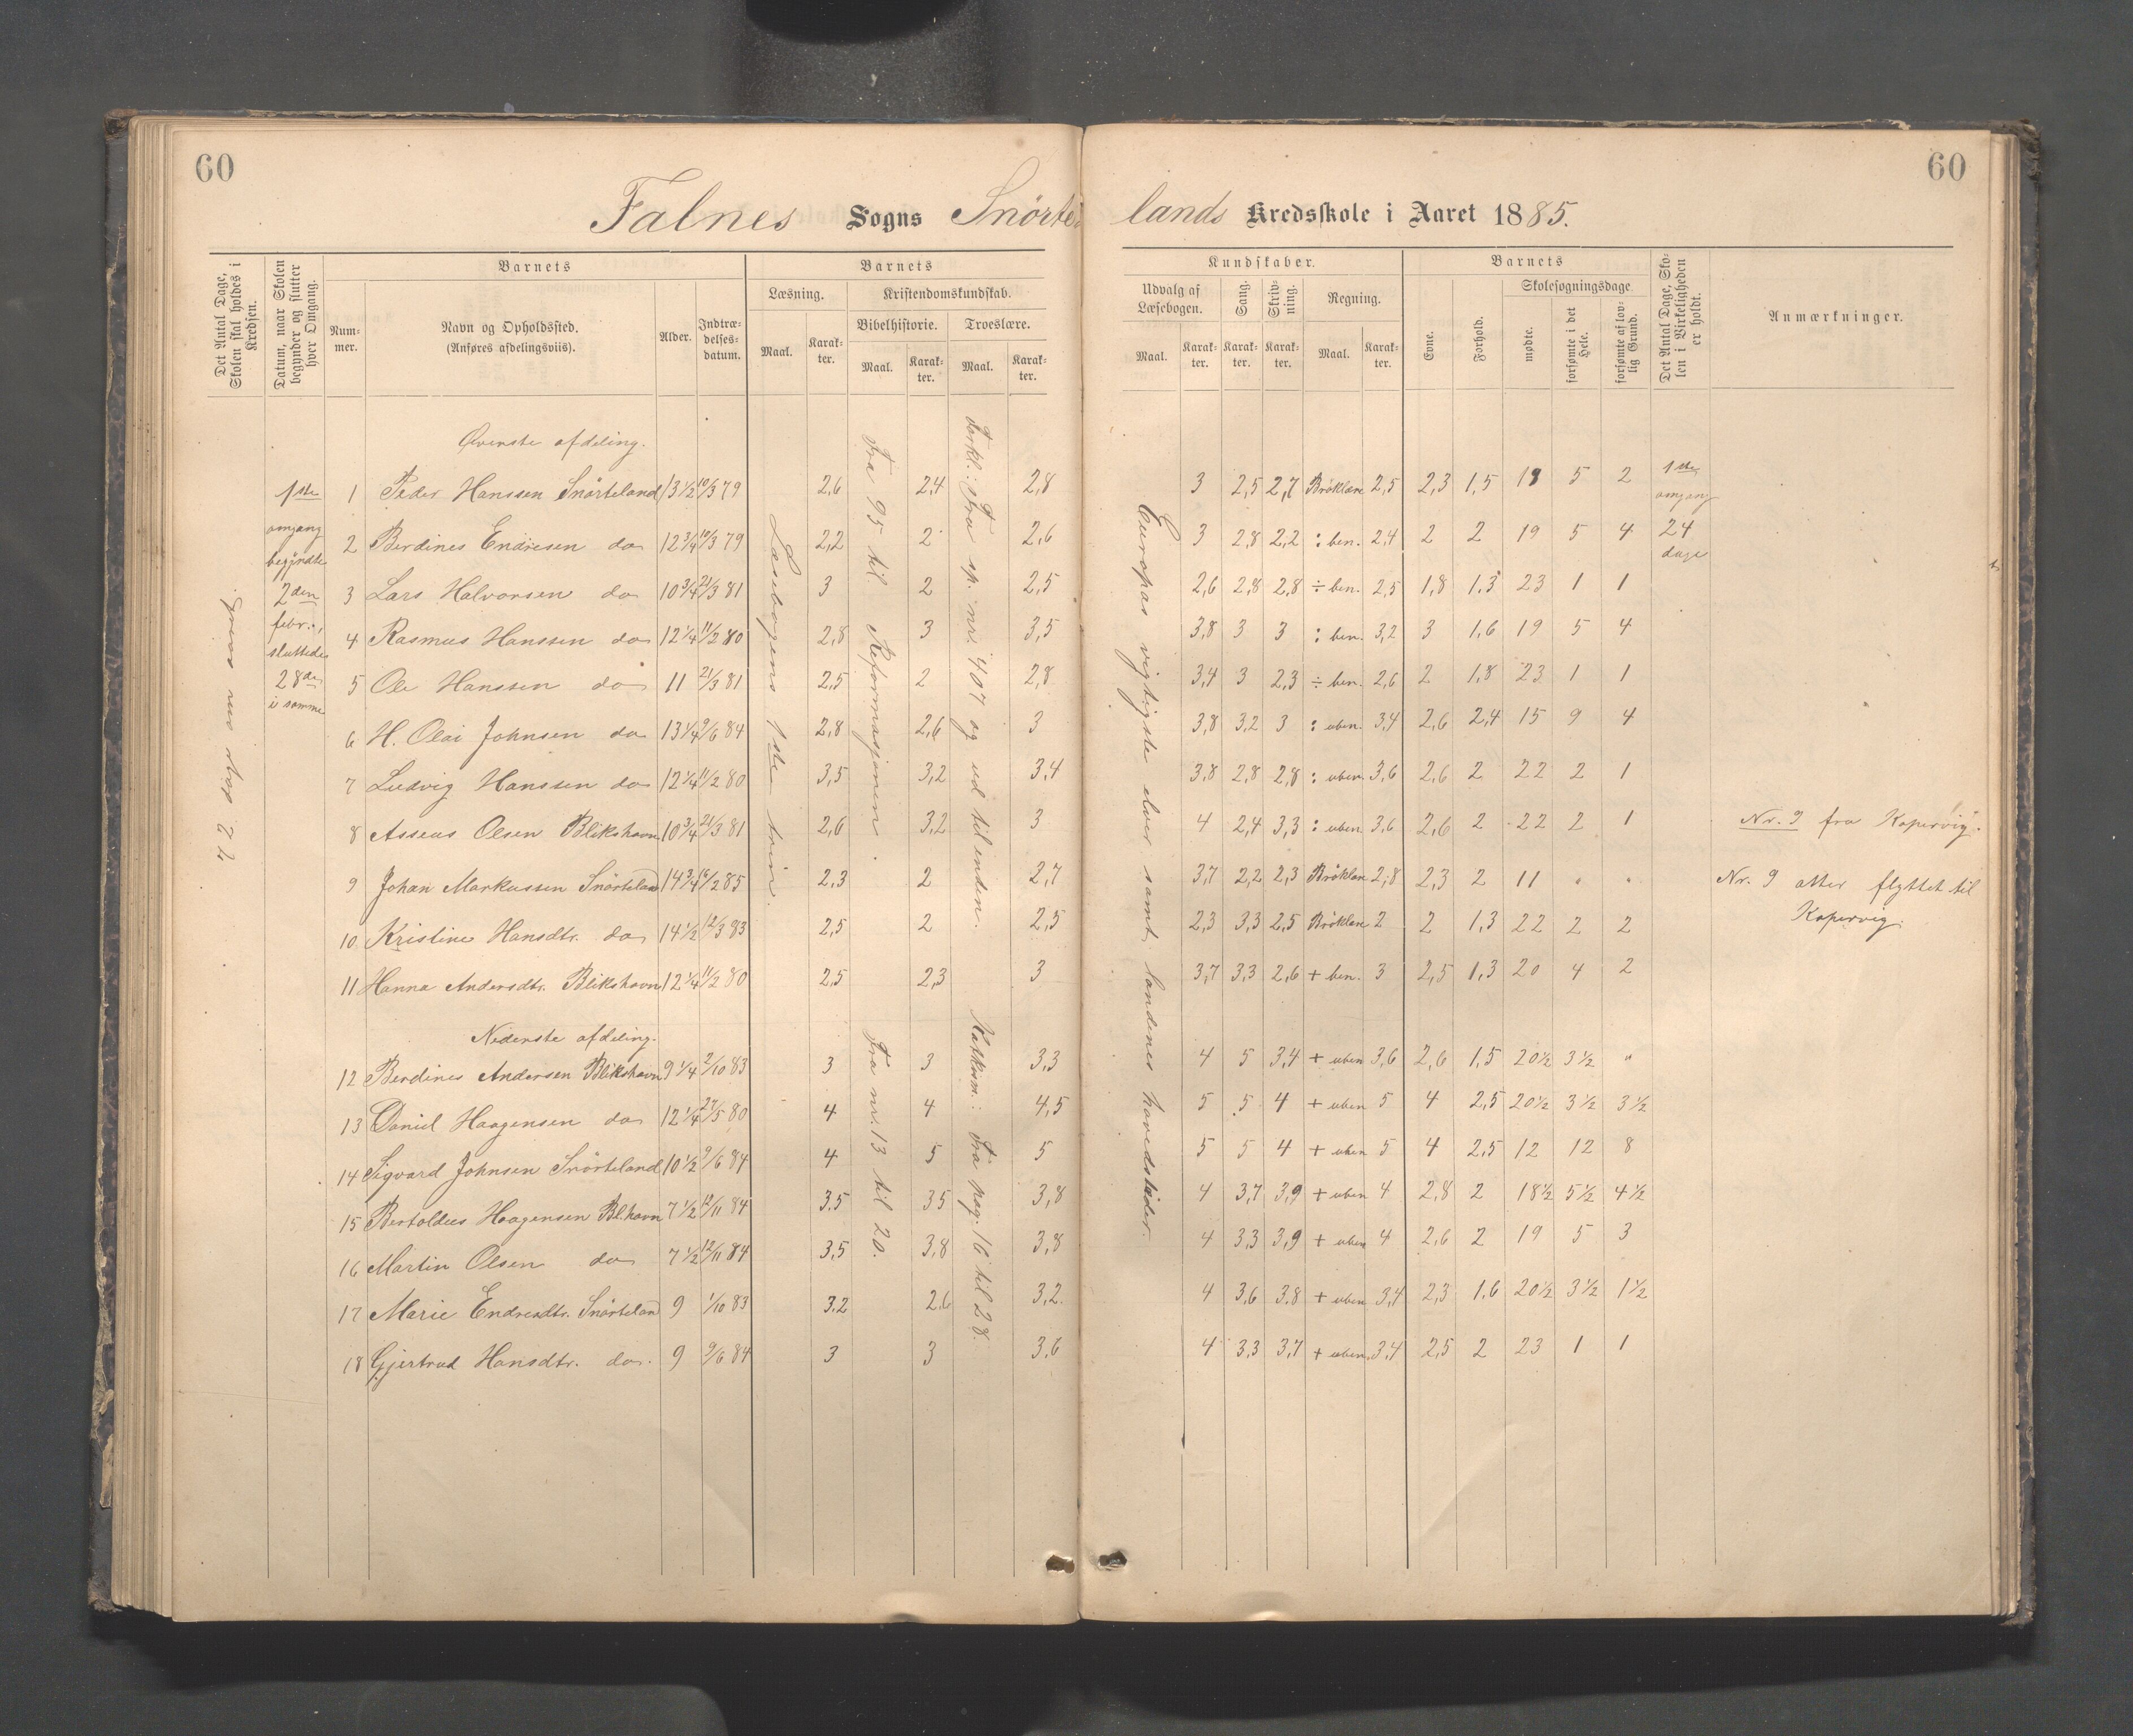 60
60
Falnes Sogns Snörte lands Kredsskole i Aaret 1885.
Det Antal Dage, Skolen skal holdes i Kredsen.
Datum, naar Skolen begynder og slutter hver Omgang.
Barnets
Nummer.
Navn og Opholdssted.
(Anføres afdelingsviis).
Alder.
Indtrædelsesdatum.
Barnets
Læsning.
Maal.
Karakter.
Kristendomskundskab.
Bibelhistorie.
Maal.
Karakter.
Troeslære.
Maal.
Karakter.
Kundskaber.
Udvalg af Læsebogen.
Maal.
Karakter.
Sang.
Karakter.
Skrivning.
Karakter.
Regning.
Maal.
Karakter.
Barnets
Evne.
Forhold.
Skolesøgningsdage.
mødte.
forsømte i det Hele.
forsømte af lovlig Grund.
Det Antal Dage, Skolen i Virkeligheden er holdt.
Anmærkninger.
1ste omgang begyndte 2den febr., sluttedes 28de i samme
Læsebogens 1ste trin.
Fra 95 til Reformasjonen.
Forkl.: Fra sp. nr. 407 og ud til enden.
Europas vigtigste elver samt landenes hovedstæder.
1ste omgang 24 dage
Øverste afdeling.
1 Peder Hanssen Snörteland 13 1/2 10/3 79 2,6 2,4 2,8 3 2,5 2,7 Bröklære 2,5 2,3 1,5 19 5 2
2 Berdines Endresen do 12 3/4 10/3 79 2,2 2 2,6 3 2,8 2,2 : ben. 2,4 2 2 19 5 4
3 Lars Halvorsen do 10 3/4 21/3 81 3 2 2,5 2,6 2,8 2,8 ÷ ben. 2,5 1,8 1,3 23 1 1
4 Rasmus Hanssen do 12 1/4 11/2 80 2,8 3 3,5 3,8 3 3 : ben. 3,2 3 1,6 19 5 4
5 Ole Hanssen do 11 21/3 81 2,5 2 2,8 3,4 3 2,3 ÷ ben. 2,6 2 1,8 23 1 1
6 H. Olai Johnsen do 13 1/4 9/6 84 2,8 2,6 3 3,8 3,2 3 : uben. 3,4 2,6 2,4 15 9 4
7 Ludvig Hanssen do 12 1/4 11/2 80 3,5 3,2 3,4 3,8 2,8 2,8 : uben. 3,6 2,6 2 22 2 1
8 Asseus Olsen Blikshavn 10 3/4 21/3 81 2,6 3,2 3 4 2,4 3,3 : uben 3,6 2,6 2 22 2 1 Nr. 9 fra Kopervig.
9 Johan Markussen Snörteland 14 3/4 16/2 85 2,3 2 2,7 3,7 2,2 2,3 Bröklære 2,8 2,3 2 11 " " Nr. 9 atter flyttet til
Kopervig.
10 Kristine Hansdtr. do 14 1/2 12/3 83 2,5 2 2,5 2,3 3,3 2,5 Bröklære 2 2 1,3 22 2 2
11 Hanna Andersdtr. Blikshavn 12 1/4 11/2 80 2,5 2,3 3 3,7 3,3 2,6 + ben. 3 2,5 1,3 20 4 2
Nederste afdeling.
Fra nr. 13 til 20.
Katkism.: Fra pag. 16 til 28.
12 Berdines Andersen Blikshavn 9 1/4 2/10 83 3 3 3,3 4 5 3,4 + uben 3,6 2,6 1,5 20 1/2 3 1/2 "
13 Daniel Haagensen do 12 1/4 27/5 80 4 4 4,5 5 5 4 + uben 5 4 2,5 20 1/2 3 1/2 3 1/2
14 Sigvard Johnsen Snörteland 10 1/2 9/6 84 4 5 5 5 5 4 + uben 5 4 2,5 12 12 8
15 Bertoldus Haagensen Bl.havn 7 1/2 12/11 84 3,5 3,5 3,8 4 3,7 3,9 + uben 4 2,8 2 18 1/2 5 1/2 4 1/2
16 Martin Olsen do 7 1/2 12/11 84 3,5 3,8 3,8 4 3,3 3,9 + uben 4 2,6 2 19 5 3
17 Marie Endresdtr. Snörteland 9 1/10 83 3,2 2,6 3,2 4 3,6 3,8 + uben 3,4 2,3 1,6 20 1/2 3 1/2 1 1/2
18 Gjertrud Hansdtr. do. 9 9/6 84 3 3 3,6 4 3,3 3,7 + uben 3,4 2,5 2 23 1 1